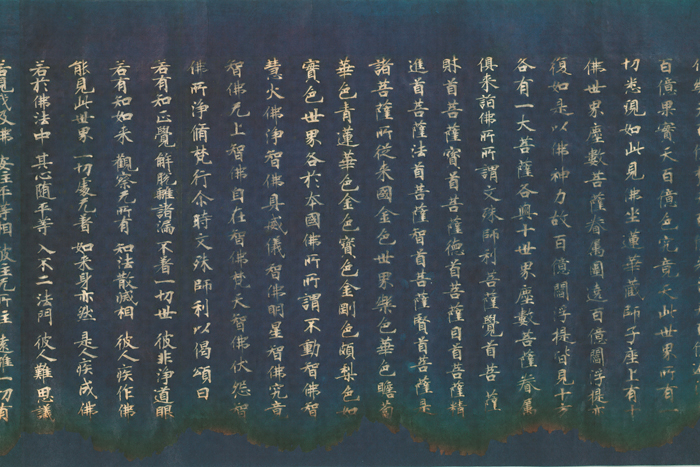 百億果實天百億色究竟天此世界所有一
切悉現如此見佛坐蓮華藏師子座上有十
佛世界塵數菩薩眷屬圍遶百億閻浮提亦
復如是以佛神力故百億閻浮提皆見十方
各有一大菩薩各與十世界塵數菩薩眷屬
俱來詣佛所所謂文殊師利菩薩覺首菩薩
財首菩薩寶首菩薩德首菩薩目首菩薩精
進首菩薩法首菩薩智首菩薩賢首菩薩是
諸菩薩所從來國金色世界樂色華色瞻蔔
華色青蓮華色金色寶色金剛色頗梨色如
寶色世界各於本國佛所所謂不動智佛智
慧火佛淨智佛具威儀智佛明星智佛究竟
智佛无上智佛自在智佛梵天智佛伏怨智
佛所淨脩梵行尒時文殊師利以偈頌曰
若有知正覺 解脫離諸漏 不著一切世 彼非淨道眼
若有知如來 觀察无所有 知法散滅相 彼人疾作佛
能見此世界 一切處无著 如來身亦然 是人疾成佛
若於佛法中 其心隨平等 入不二法門 彼人難思議
若見我及佛 安住平等相 彼住无所住 遠離一切有